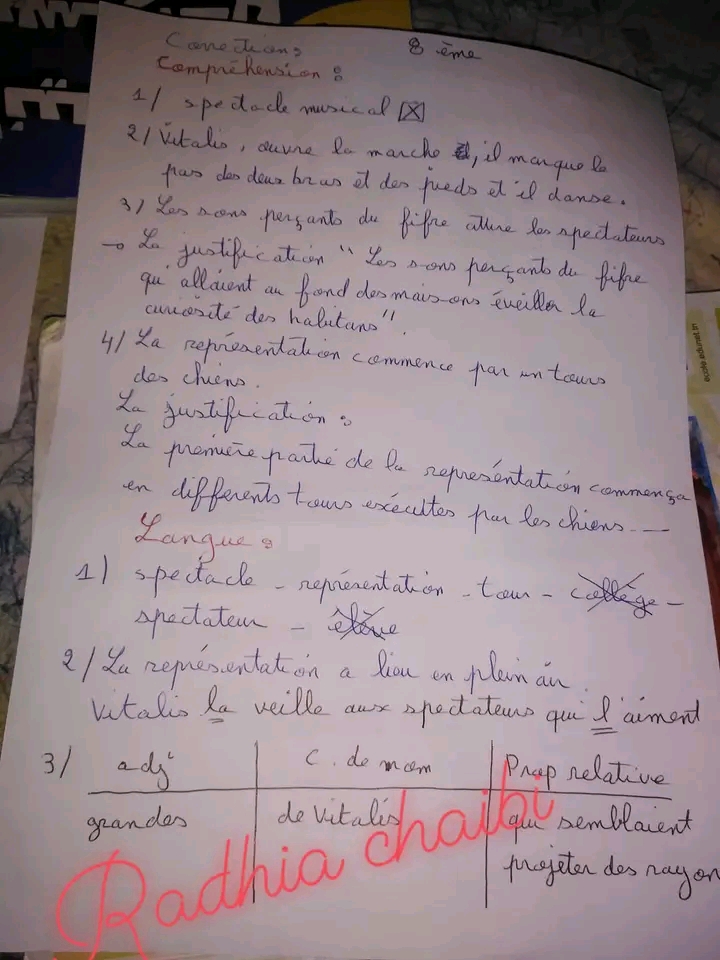 Corrections 8 ème
Compréhension :
1/ spectacle musical [X]
2/ Vitalis, ouvre la marche, il marque le
pas des deux bras et des pieds et il danse.
3/ Les sons perçants du fifre attire les spectateurs
→ La justification " Les sons perçants du fifre
qui allaient au fond des maisons éveiller la
curiosité des habitans".
4/ La représentation commence par un tours
des chiens.
La justification :
La première partie de la représentation commença
en differents tours exécutés par les chiens ---
Langue :
1) spectacle - représentation - tour - collège -
spectateur - élève
2/ La représentation a lieu en plein air.
Vitalis la veille aux spectateurs qui l'aiment
3/ adj C. de nom Prop relative
grandes de Vitalis qui semblaient
projeter des rayon
Radhia chaibi
ecole.edunet.tn